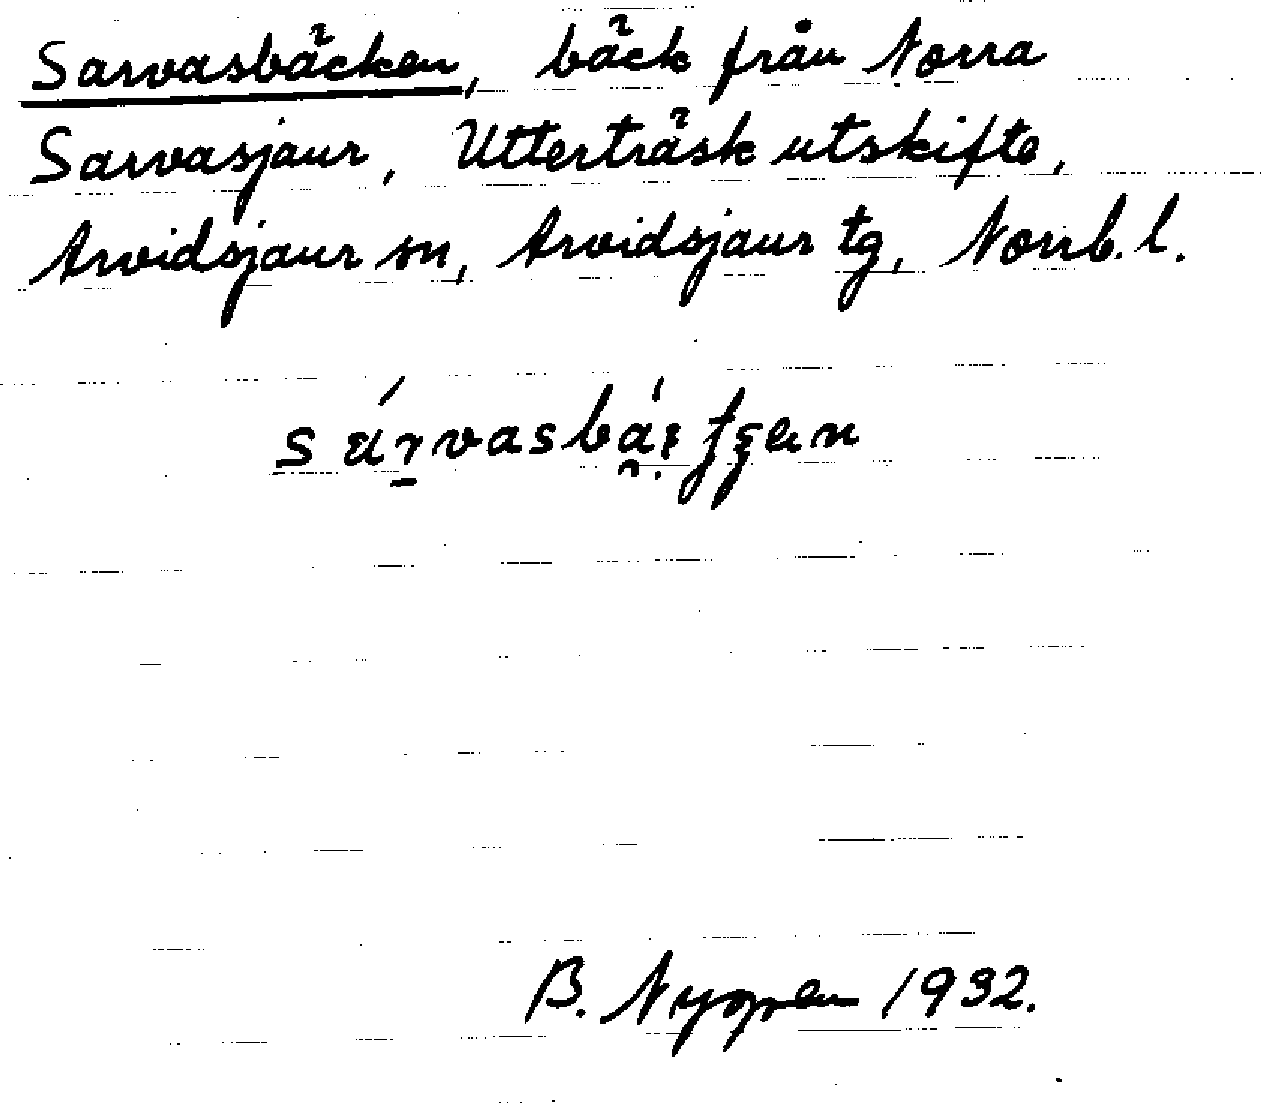 Sarvasbäcken, bäck från Norra
Sarvasjaur, Utterträsk utskifte,
Arvidsjaur sn, Arvidsjaur tg, Norrb. l.
B. Nygren 1932.